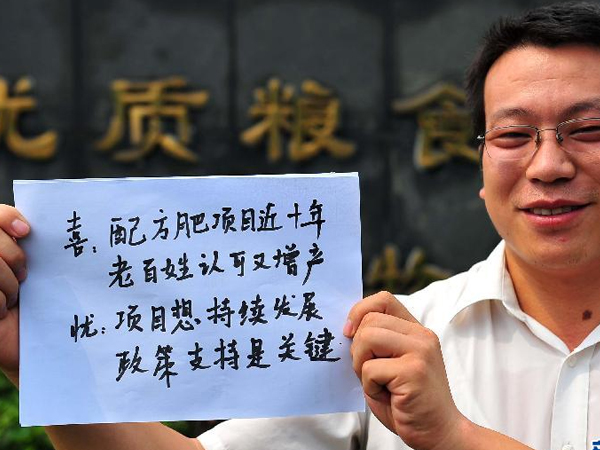 优质粮食
喜：配方肥项目近十年
老百姓认可又增产
忧：项目想持续发展
政策支持是关键